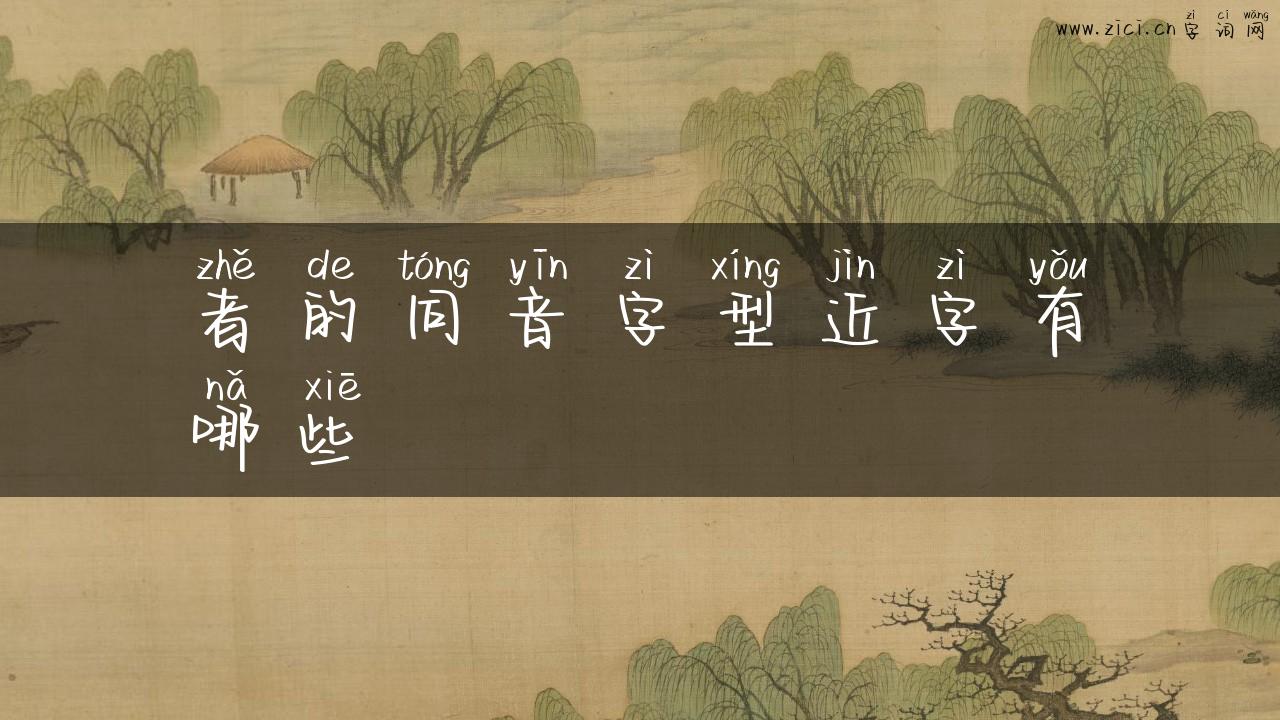 zì cí wǎng
www.zici.cn 字 词 网
zhě de tóng yīn zì xíng jìn zì yǒu
者 的 同 音 字 型 近 字 有
nǎ xiē
哪 些